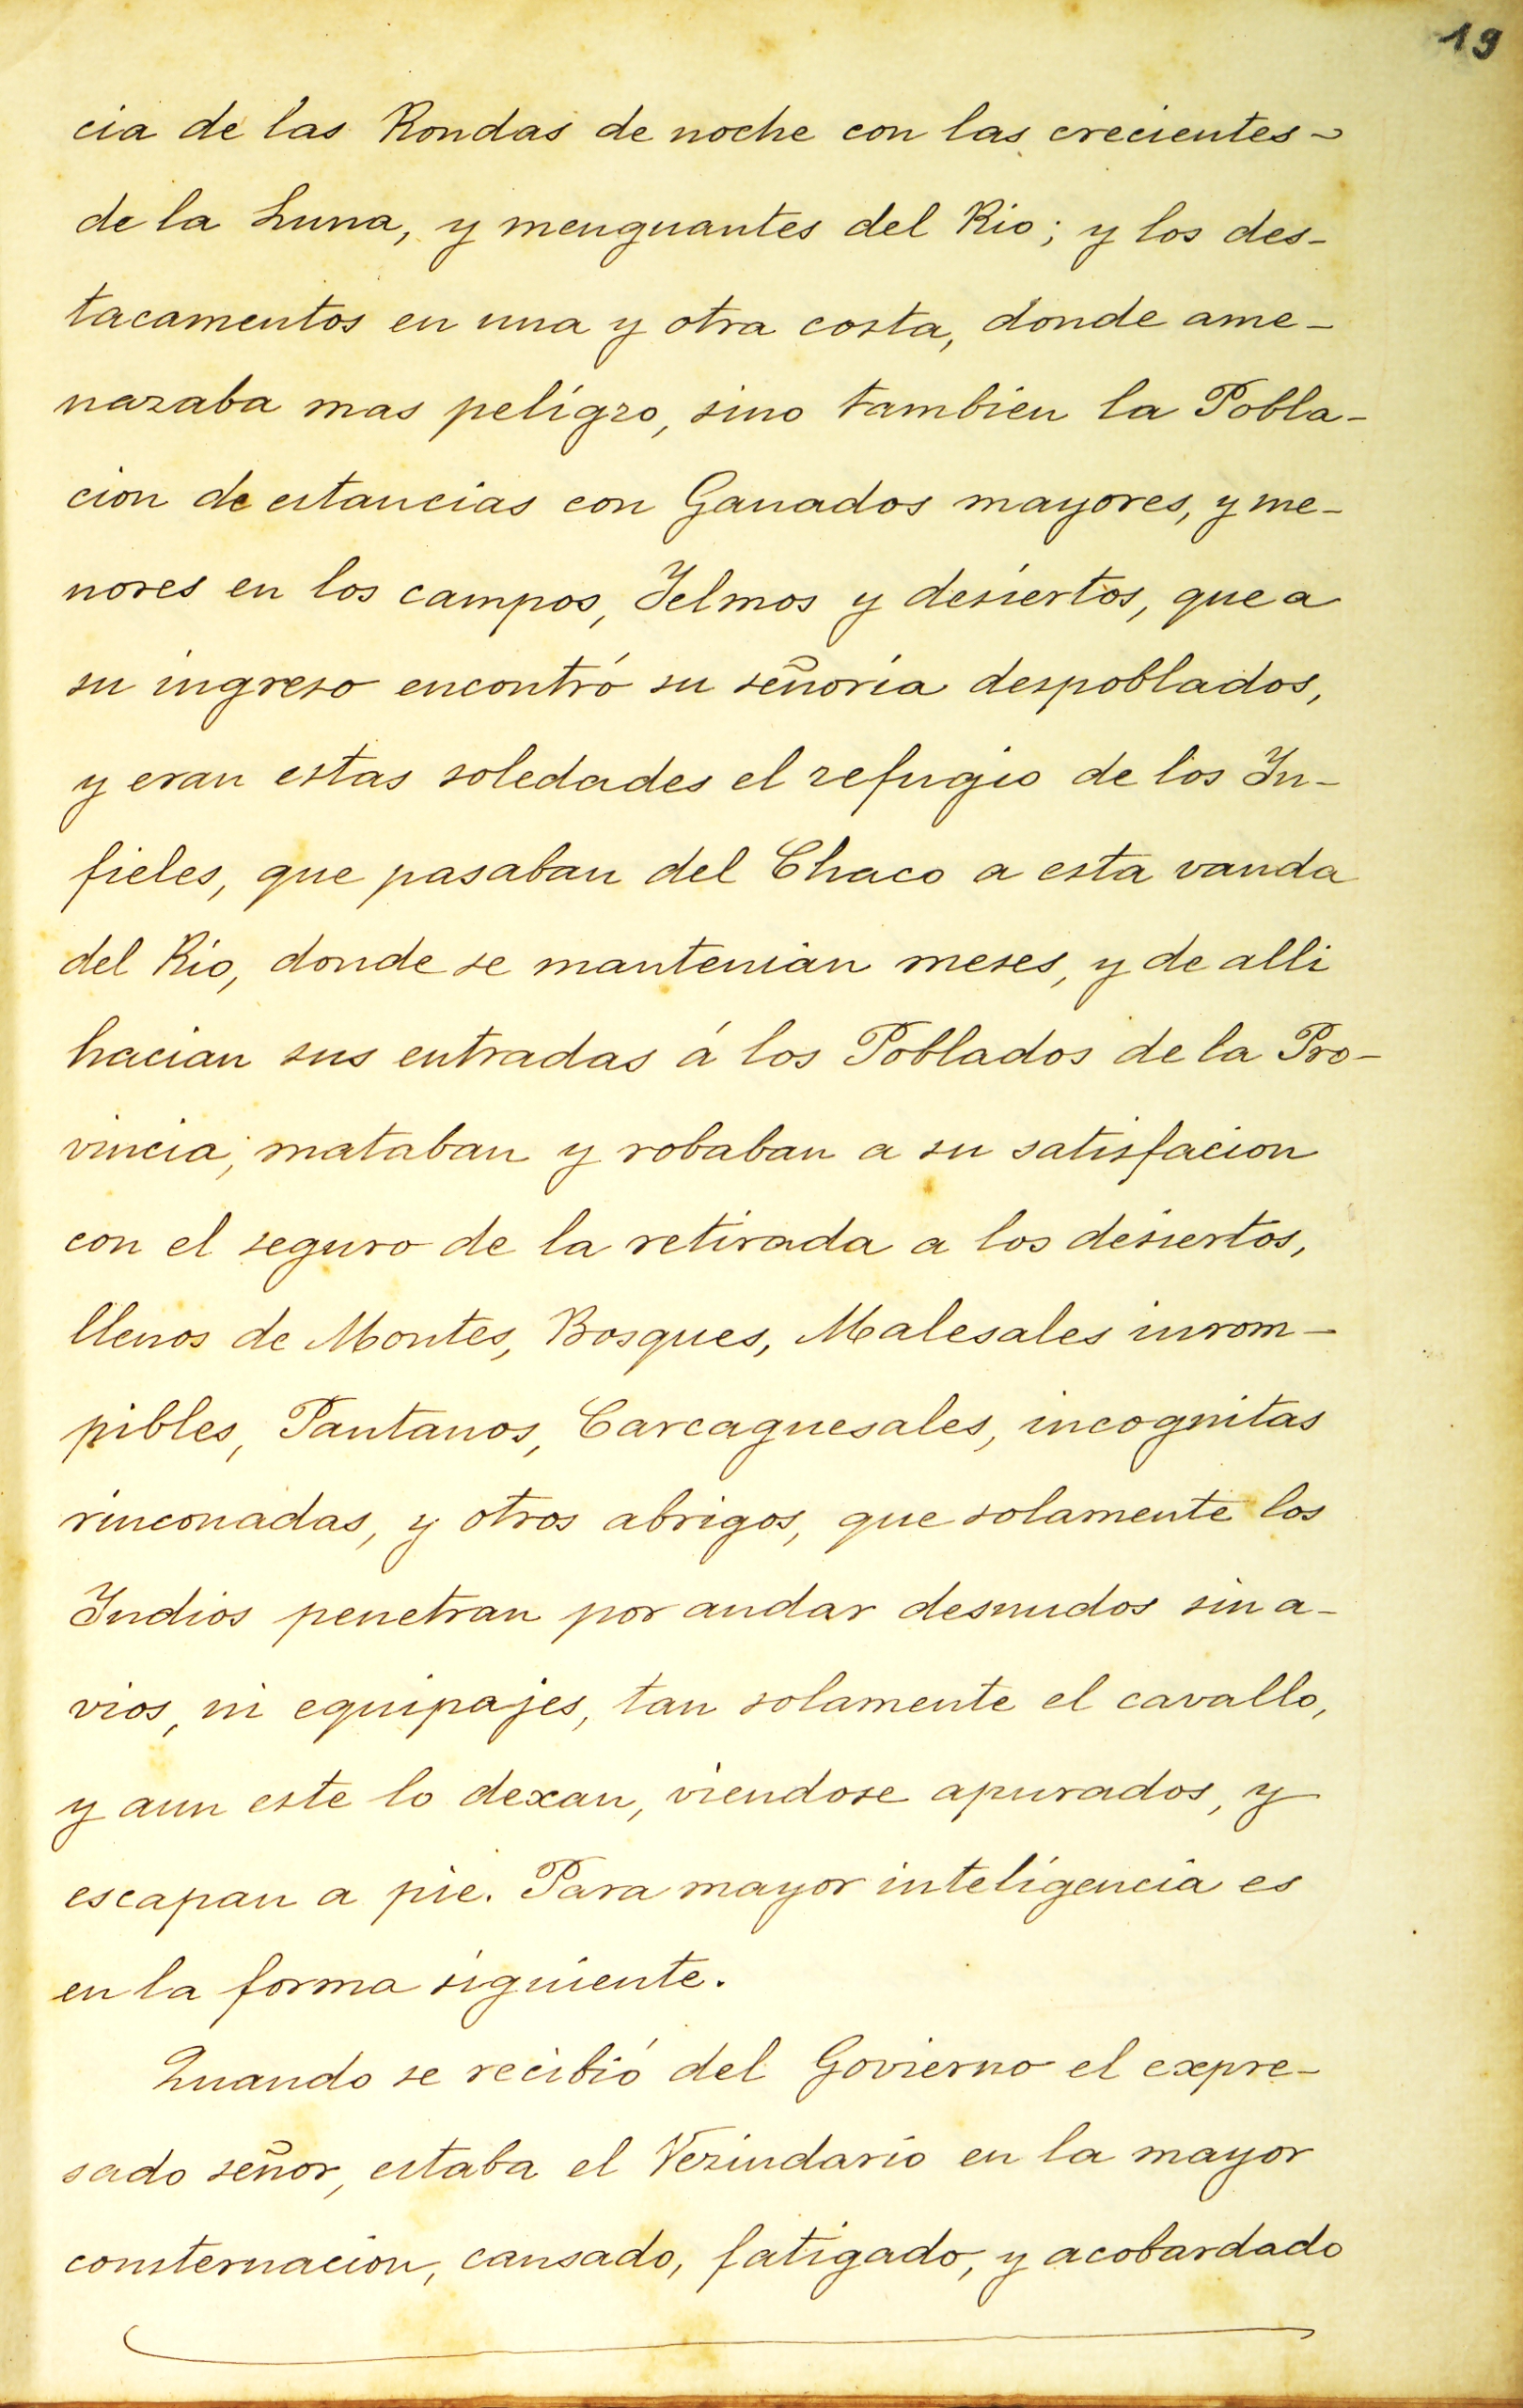 19
cia de las Rondas de noche con las crecientes-
de la Luna, y menguantes del Rio; y los des-
tacamentos en una y otra costa, donde ame-
nazaba mas peligro, sino tambien la Pobla-
cion de estancias con Ganados mayores, y me-
nores en los campos, Yelmos y desiertos, que a
su ingreso encontró su señoria despoblados,
y eran estas soledades el refugio de los In-
fieles, que pasaban del Chaco a esta vanda
del Rio, donde se mantenian meses, y de alli
hacian sus entradas á los Poblados de la Pro-
vincia; mataban y robaban a su satisfacion
con el seguro de la retirada a los desiertos,
llenos de Montes, Bosques, Malesales inrom-
pibles, Pantanos, Carcaguesales, incognitas
rinconadas, y otros abrigos, que solamente los
Indios penetran por andar desnudos sin a-
vios, ni equipajes, tan solamente el cavallo,
y aun este lo dexan, viendose apurados, y
escapan a pie. Para mayor inteligencia es
en la forma siguiente.
Quando se recibió del Govierno el expre-
sado señor, estaba el Vezindario en la mayor
consternacion, cansado, fatigado, y acobardado